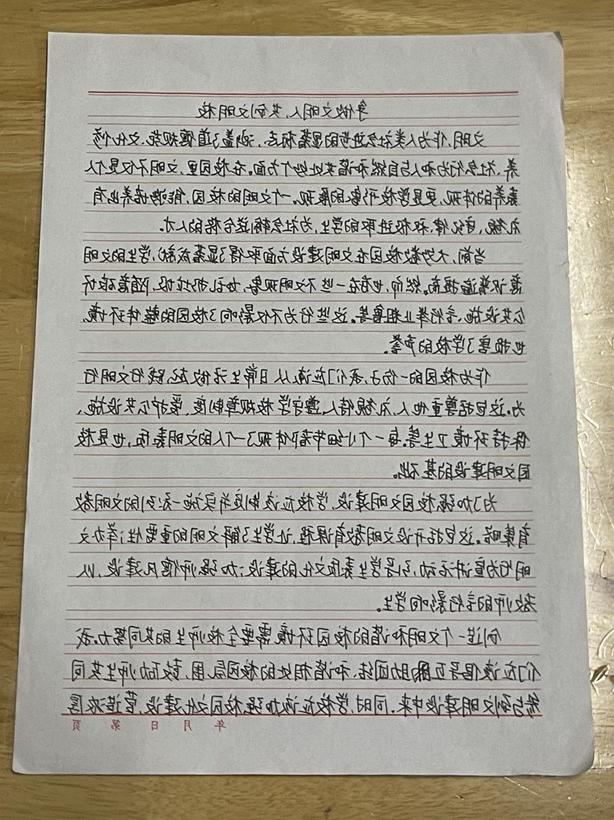 争做文明人,共创文明校
文明,作为人类社会进步的显著标志,涵盖了道德规范、文化修
养、社会行为和人与自然和谐共处个方面。在校园里,文明不仅是个人
素养的体现,更是学校形象的展现。一个文明的校园,能够培养出有
礼貌、有纪律、积极进取的学生,为社会输送合格的人才。
当前,大多数校园在文明建设方面取得了显著成就,学生的文明
意识普遍提高。然而,也存在一些不文明现象,如乱扔垃圾、随意破坏
公共设施、言行举止粗鲁等。这些行为不仅影响了校园的整体环境,
也损害了学校的声誉。
作为校园的一份子,我们应该从日常生活做起,践行文明行
为。这包括尊重他人、礼貌待人、遵守学校规章制度、爱护公共设施、
保持环境卫生等,每一个小细节都体现了一个人的文明素质,也是校
园文明建设的基础。
为了加强校园文明建设,学校应该制定并实施一系列的文明教
育策略。这包括开设文明教育课程,让学生了解文明的重要性;举办文
明行为宣讲活动,引导学生素质文化的建设;加强师德风建设,以
教师的言行影响学生。
创造一个文明和谐的校园环境需要全校师生的共同努力。我
们应该倡导互助、团结、和谐相处的校园氛围,鼓励师生共同
参与到文明建设中来。同时,学校应该加强校园文化建设,营造浓厚
年 月 日 第 页